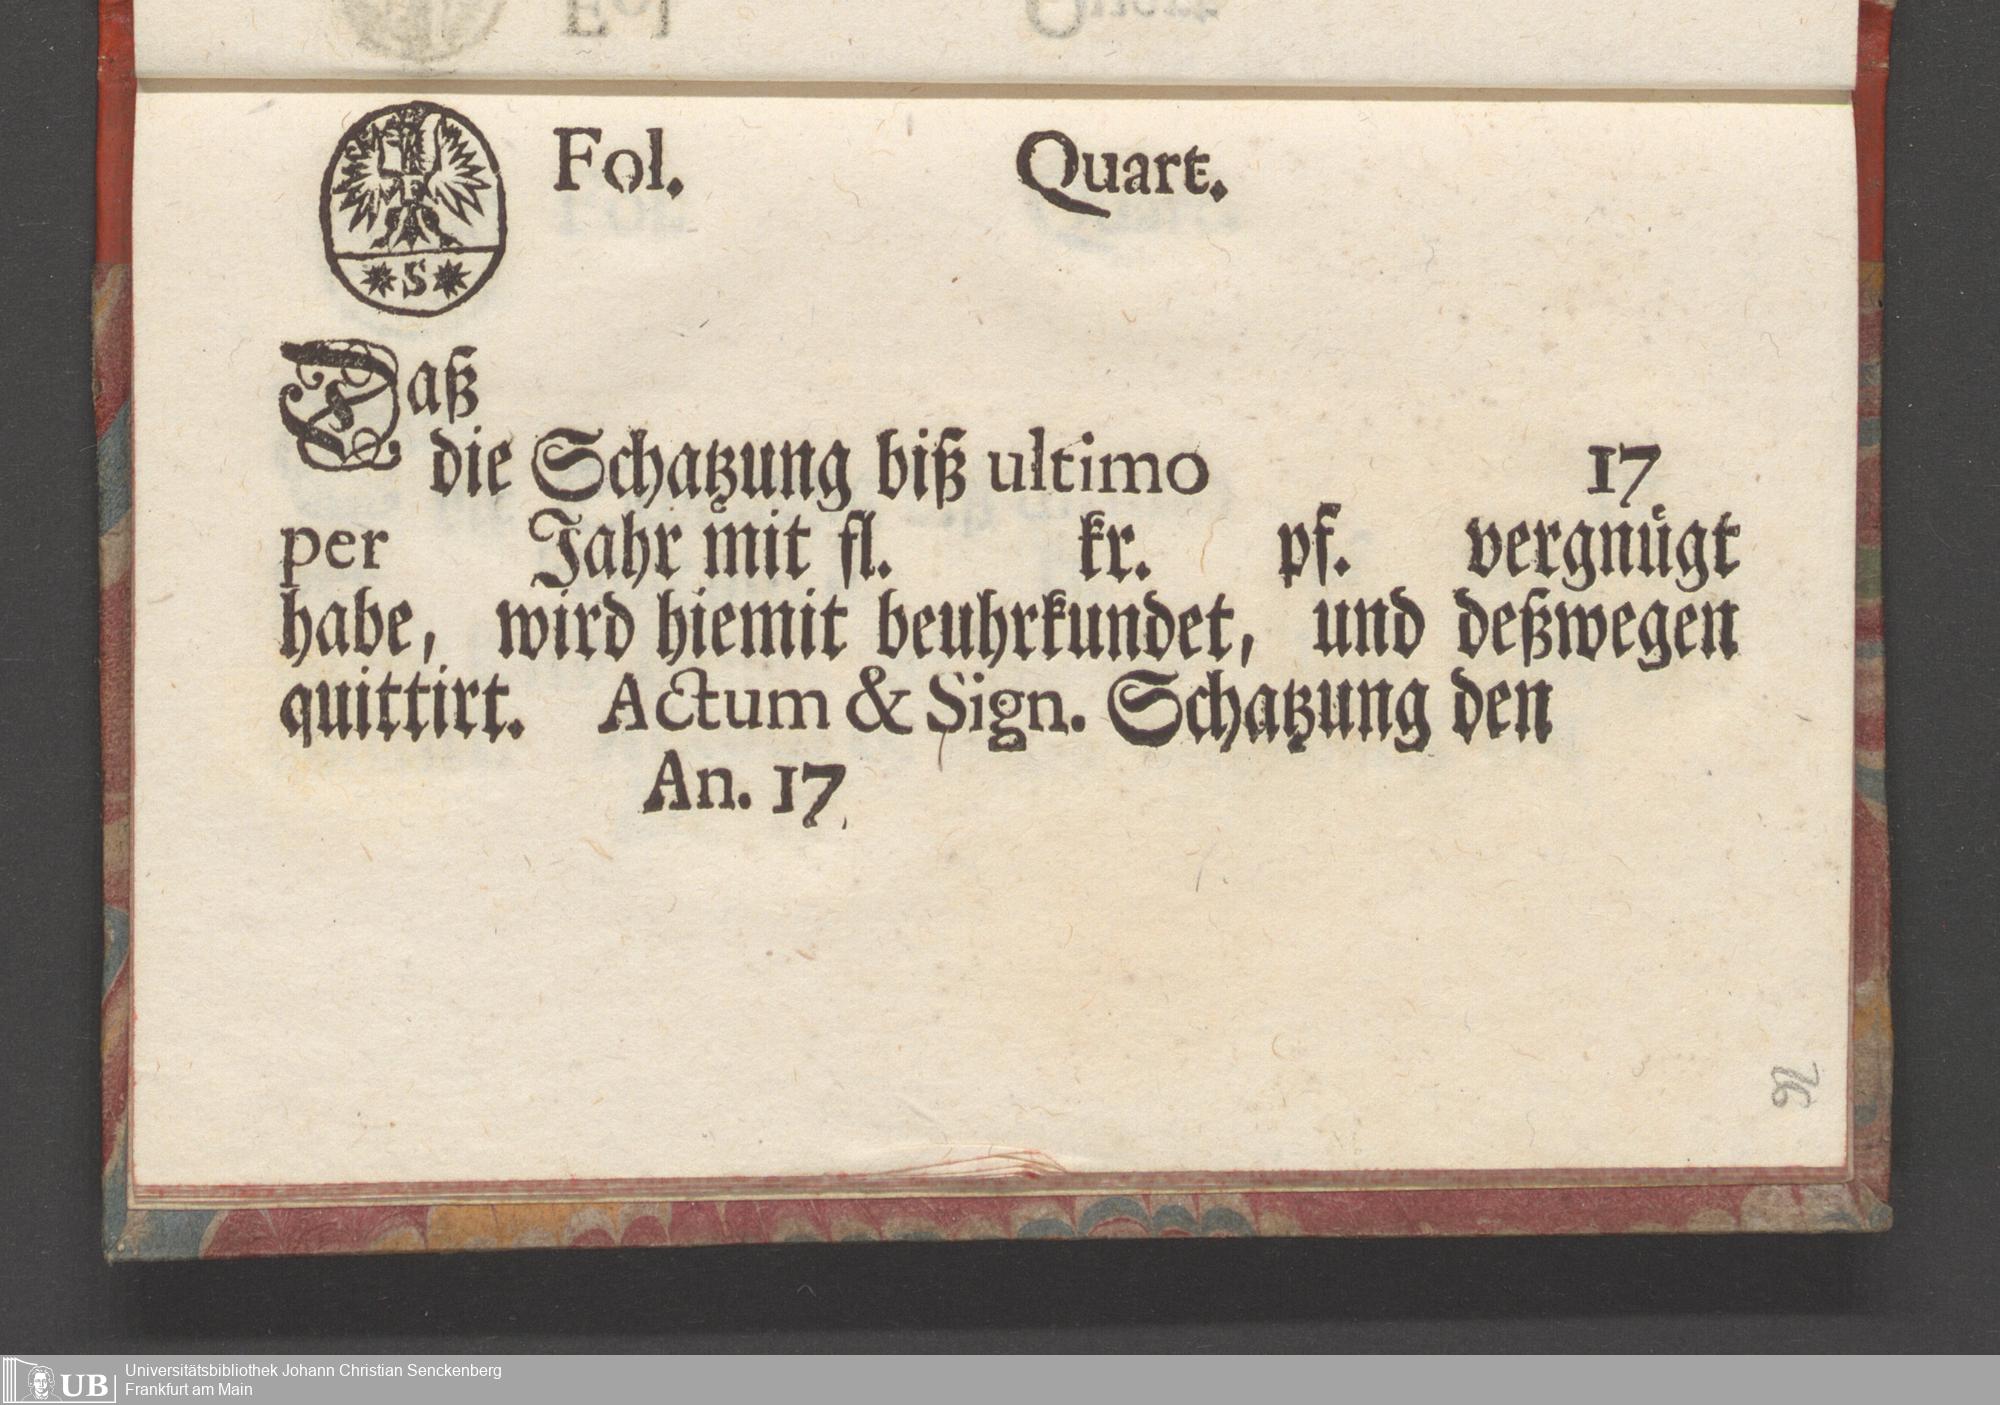 Fol. Quart.
S
Daß
die Schatzung biß ultimo 17
per Jahr mit fl. kr. pf. vergnuͤgt
habe, wird hiemit beuhrkundet, und deßwegen
quittirt. Actum & Sign. Schatzung den
An. 17
UB
Universitätsbibliothek Johann Christian Senckenberg
Frankfurt am Main